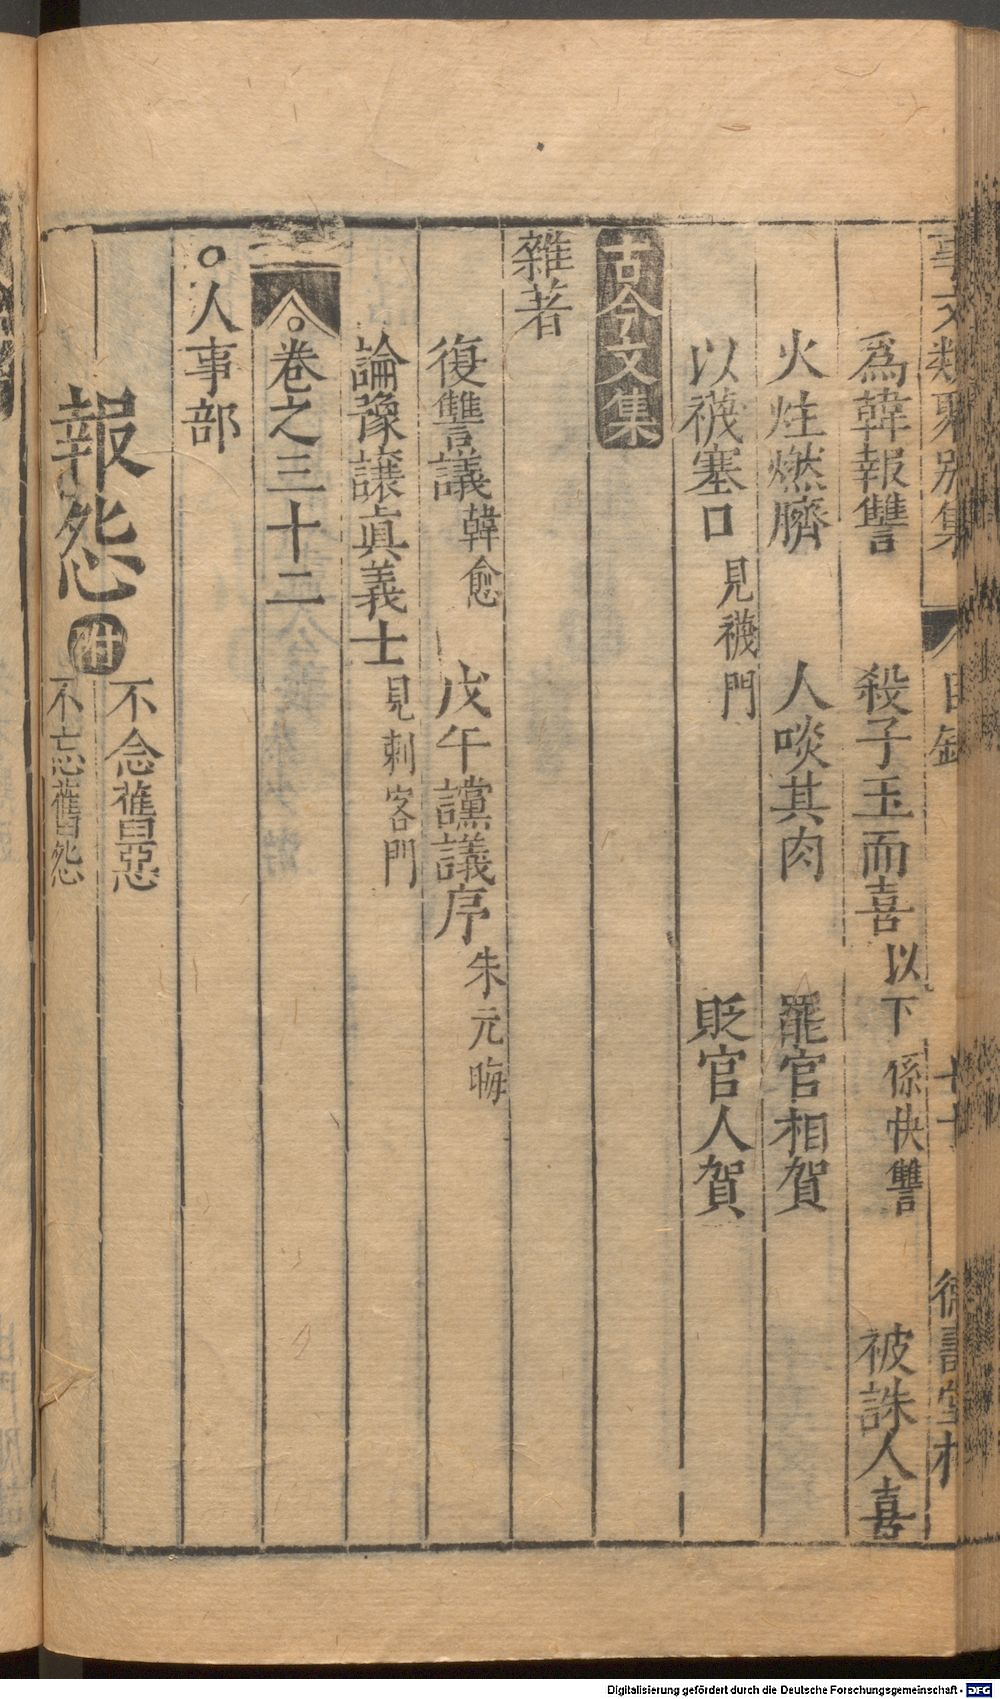 事文類聚別集 目錄
爲韓報讐 殺子玉而喜 以下係快讐 被誅人喜
火炷燃臍 人啖其肉 罷官相賀
以襪塞口 見襪門 貶官人賀
古今文集
雜著
復讐議 韓愈 戊午讜議序 朱元晦
論豫讓眞義士 見刺客門
卷之三十二
○人事部
報怨 附 不念舊惡
不忘舊怨
Digitalisierung gefördert durch die Deutsche Forschungsgemeinschaft - DFG